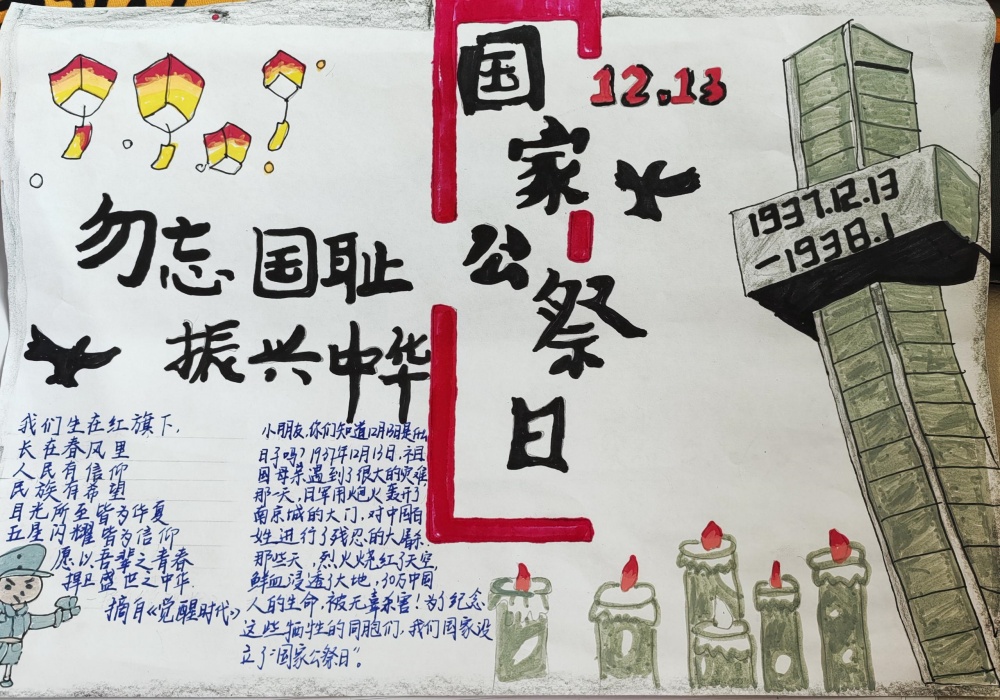 国家公祭日
12.13
勿忘国耻
振兴中华
1937.12.13
-1938.1
我们生在红旗下,
长在春风里
人民有信仰
民族有希望
目光所至皆为华夏
五星闪耀皆为信仰
愿以吾辈之青春
捍卫盛世之中华
摘自《觉醒时代》
小朋友,你们知道12月13日是什么
日子吗?1937年12月13日,祖
国母亲遇到了很大的灾难
那一天,日军用炮火轰开了
南京城的大门,对中国百
姓进行了残忍的大屠杀.
那些天,烈火烧红了天空,
鲜血浸透了大地,30万中国
人的生命,被无辜杀害!为了纪念
这些牺牲的同胞们,我们国家设
立了“国家公祭日”。